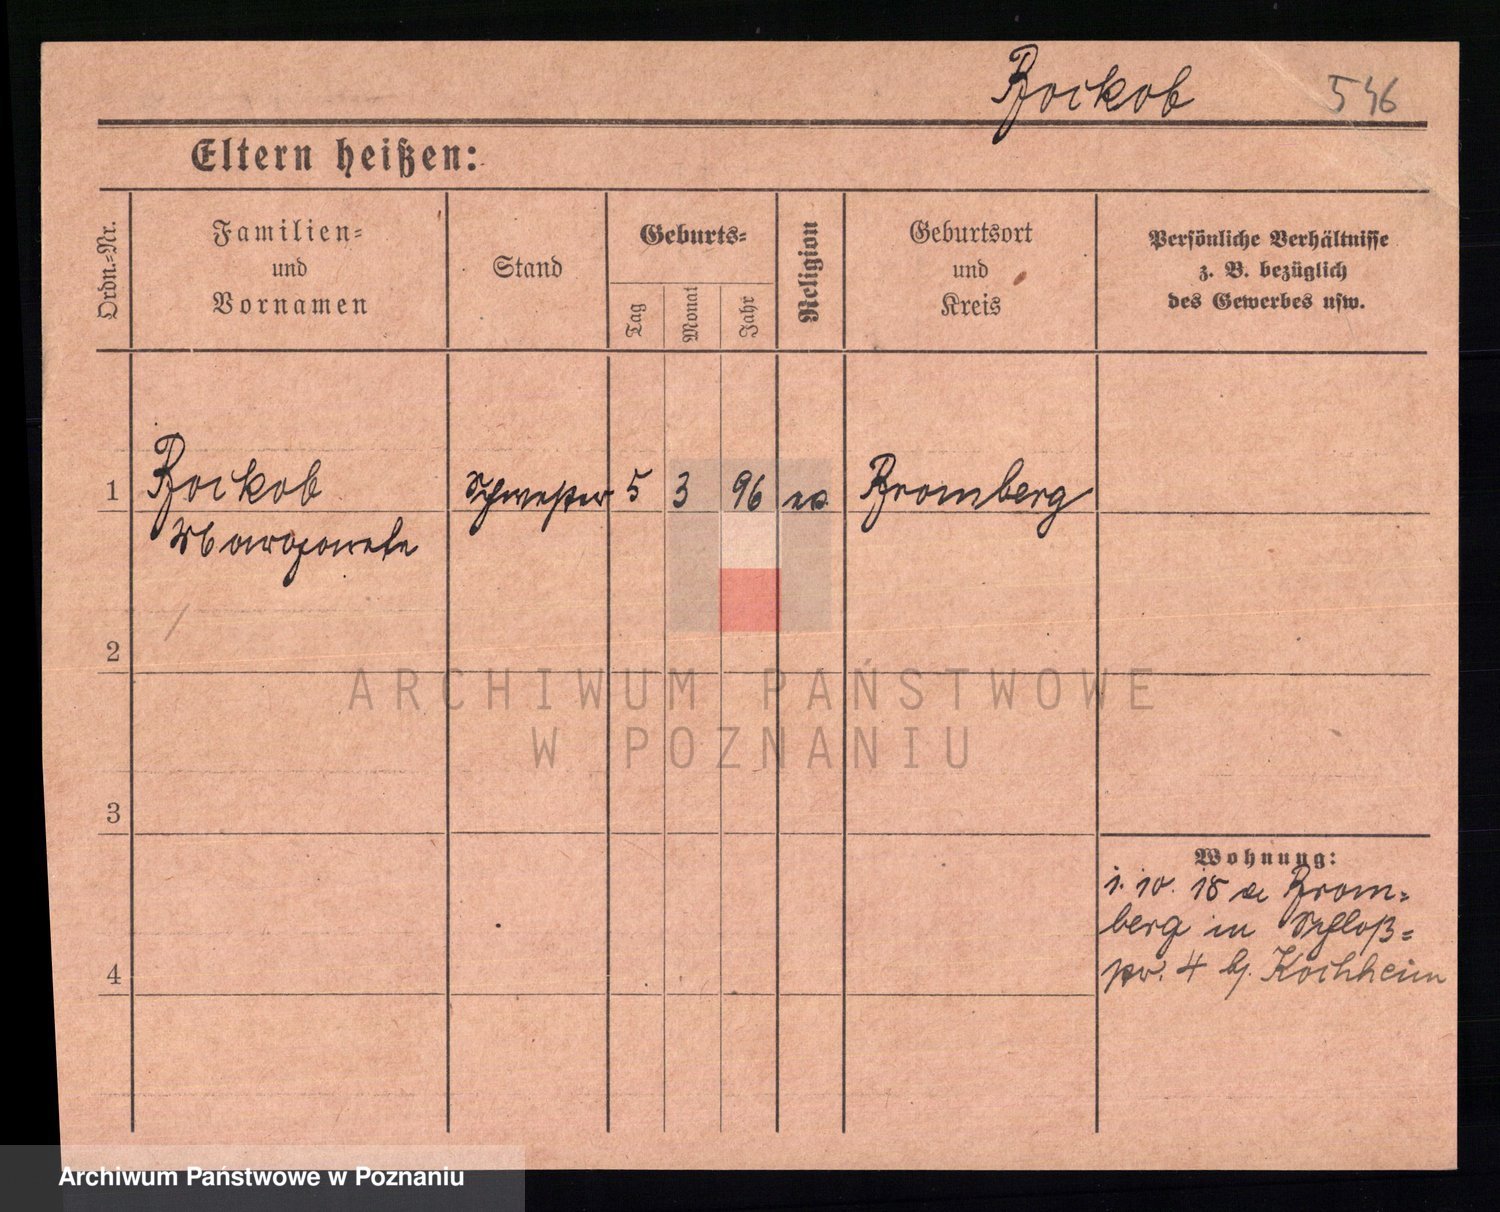 Bockob 546
Eltern heißen:
Ordn.-Nr. Familien- und Vornamen Stand Geburts- Tag Monat Jahr Religion Geburtsort und Kreis Persönliche Verhältnisse z. B. bezüglich des Gewerbes usw.
1 Bockob Schwester 5 3 96 ev. Bromberg
Margarete
2
ARCHIWUM PAŃSTWOWE
W POZNANIU
3
Wohnung:
1. 10. 18 Brom-
berg in Schloß-
4 str. 4 bj. Kochheim
Archiwum Państwowe w Poznaniu